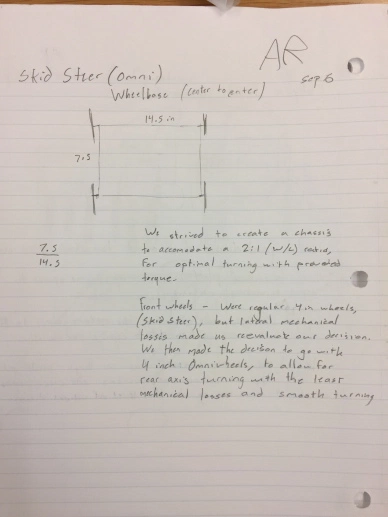 AR
Skid Steer (Omni)
Sep 6
Wheelbase (center to center)
14.5 in
7.5
We strived to create a chassis
7.5
14.5
to accomodate a 2:1 (W/L) ratio,
For optimal turning with
torque.
Front wheels - Were regular 4 in wheels,
(Skid steer), but lateral mechanical
losses made us reevaluate our decision.
We then made the decision to go with
4 inch Omniwheels, to allow for
rear axis turning with the least
mechanical losses and smooth turning